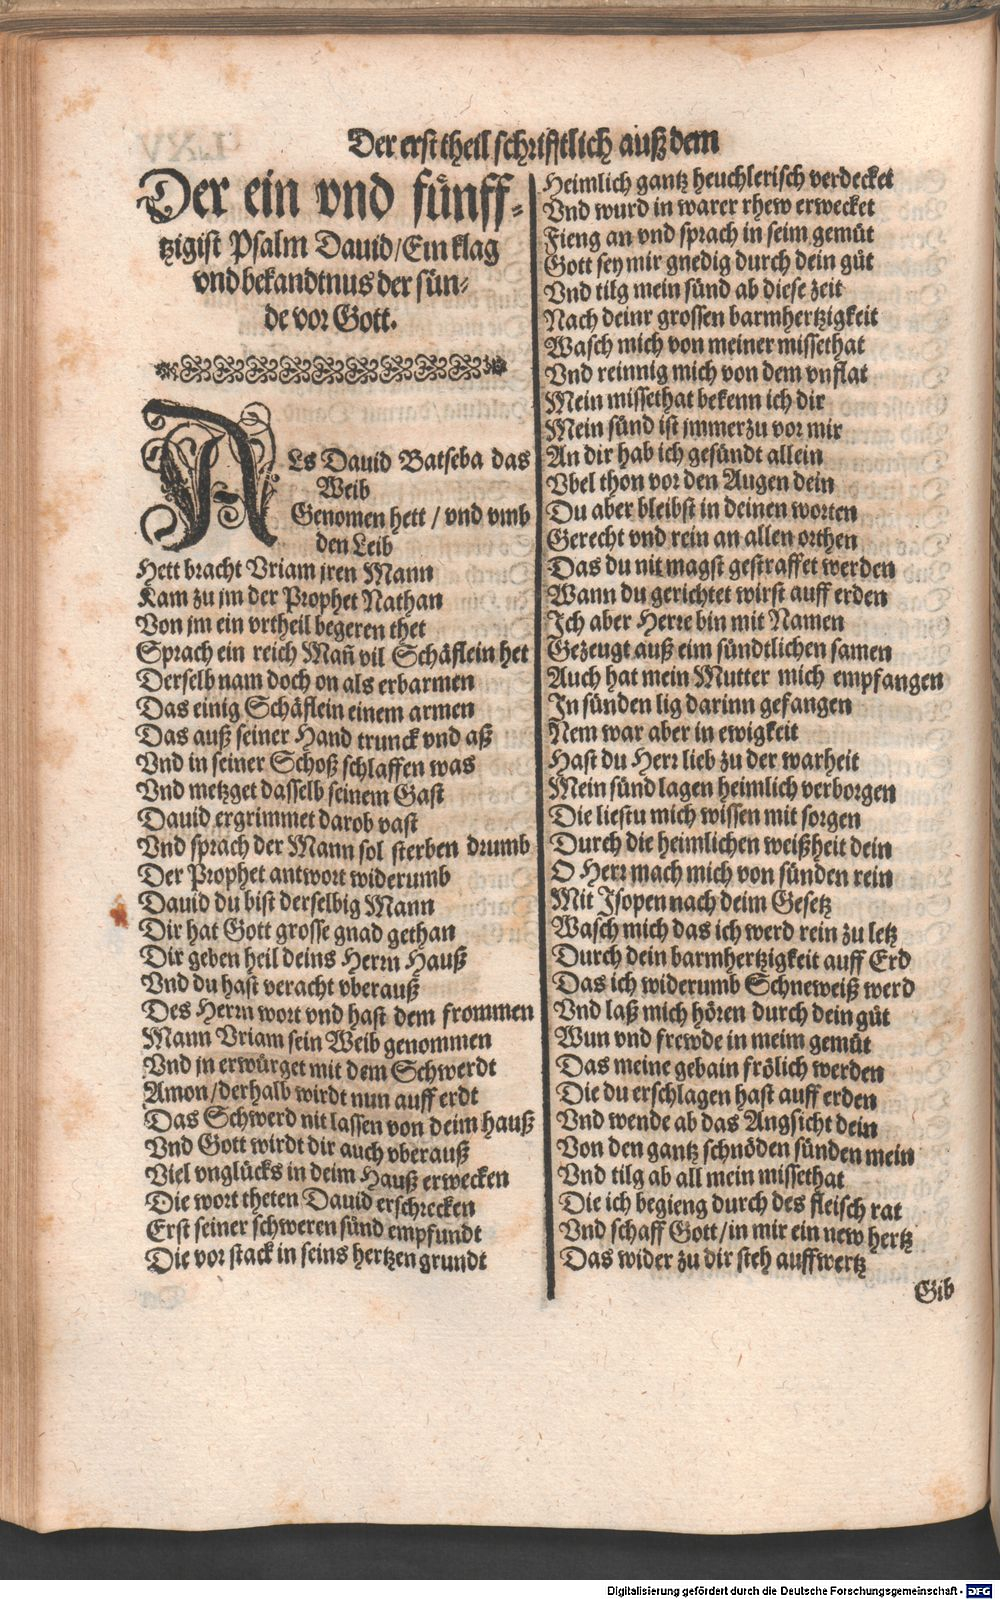 Der erst theil schrifftlich auß dem
Der ein vnd fünff-
tzigist Psalm Dauid/Ein klag
vnd bekandtnus der sün-
de vor Gott.
ALs Dauid Batseba das
Weib
Genomen hett / vnd vmb
den Leib
Hett bracht Vriam jren Mann
Kam zu jm der Prophet Nathan
Von jm ein vrtheil begeren thet
Sprach ein reich Mañ vil Schäflein het
Derselb nam doch on als erbarmen
Das einig Schäflein einem armen
Das auß seiner Hand trunck vnd aß
Vnd in seiner Schoß schlaffen was
Vnd metzget dasselb seinem Gast
Dauid ergrimmet darob vast
Vnd sprach der Mann sol sterben drumb
Der Prophet antwort widerumb
Dauid du bist derselbig Mann
Dir hat Gott grosse gnad gethan
Dir geben heil deins Herrn Hauß
Vnd du hast veracht vberauß
Des Herrn wort vnd hast dem frommen
Mann Vriam sein Weib genommen
Vnd jn erwürget mit dem Schwerdt
Amon/derhalb wirdt nun auff erdt
Das Schwerd nit lassen von deim hauß
Vnd Gott wirdt dir auch vberauß
Viel vnglücks in deim Hauß erwecken
Die wort theten Dauid erschrecken
Erst seiner schweren sünd empfundt
Die vor stack in seins hertzen grundt
Heimlich gantz heuchlerisch verdecket
Vnd wurd in warer rhew erwecket
Fieng an vnd sprach in seim gemüt
Gott sey mir gnedig durch dein güt
Vnd tilg mein sünd ab diese zeit
Nach deinr grossen barmhertzigkeit
Wasch mich von meiner missethat
Vnd reinnig mich von dem vnflat
Mein missethat bekenn ich dir
Mein sünd ist jmmerzu vor mir
An dir hab ich gesündt allein
Vbel thon vor den Augen dein
Du aber bleibst in deinen worten
Gerecht vnd rein an allen orthen
Das du nit magst gestraffet werden
Wann du gerichtet wirst auff erden
Ich aber Herre bin mit Namen
Gezeugt auß eim sündtlichen samen
Auch hat mein Mutter mich empfangen
In sünden lig darinn gefangen
Nem war aber in ewigkeit
Hast du Herr lieb zu der warheit
Mein sünd lagen heimlich verborgen
Die liestu mich wissen mit sorgen
Durch die heimlichen weißheit dein
O Herr mach mich von sünden rein
Mit Isopen nach deim Gesetz
Wasch mich das ich werd rein zu letz
Durch dein barmhertzigkeit auff Erd
Das ich widerumb Schneweiß werd
Vnd laß mich hören durch dein güt
Wun vnd frewde in meim gemüt
Das meine gebain frölich werden
Die du erschlagen hast auff erden
Vnd wende ab das Angsicht dein
Von den gantz schnöden sünden mein
Vnd tilg ab all mein missethat
Die ich begieng durch des fleisch rat
Vnd schaff Gott/in mir ein new hertz
Das wider zu dir steh auffwertz
Gib
Digitalisierung gefördert durch die Deutsche Forschungsgemeinschaft - DFG